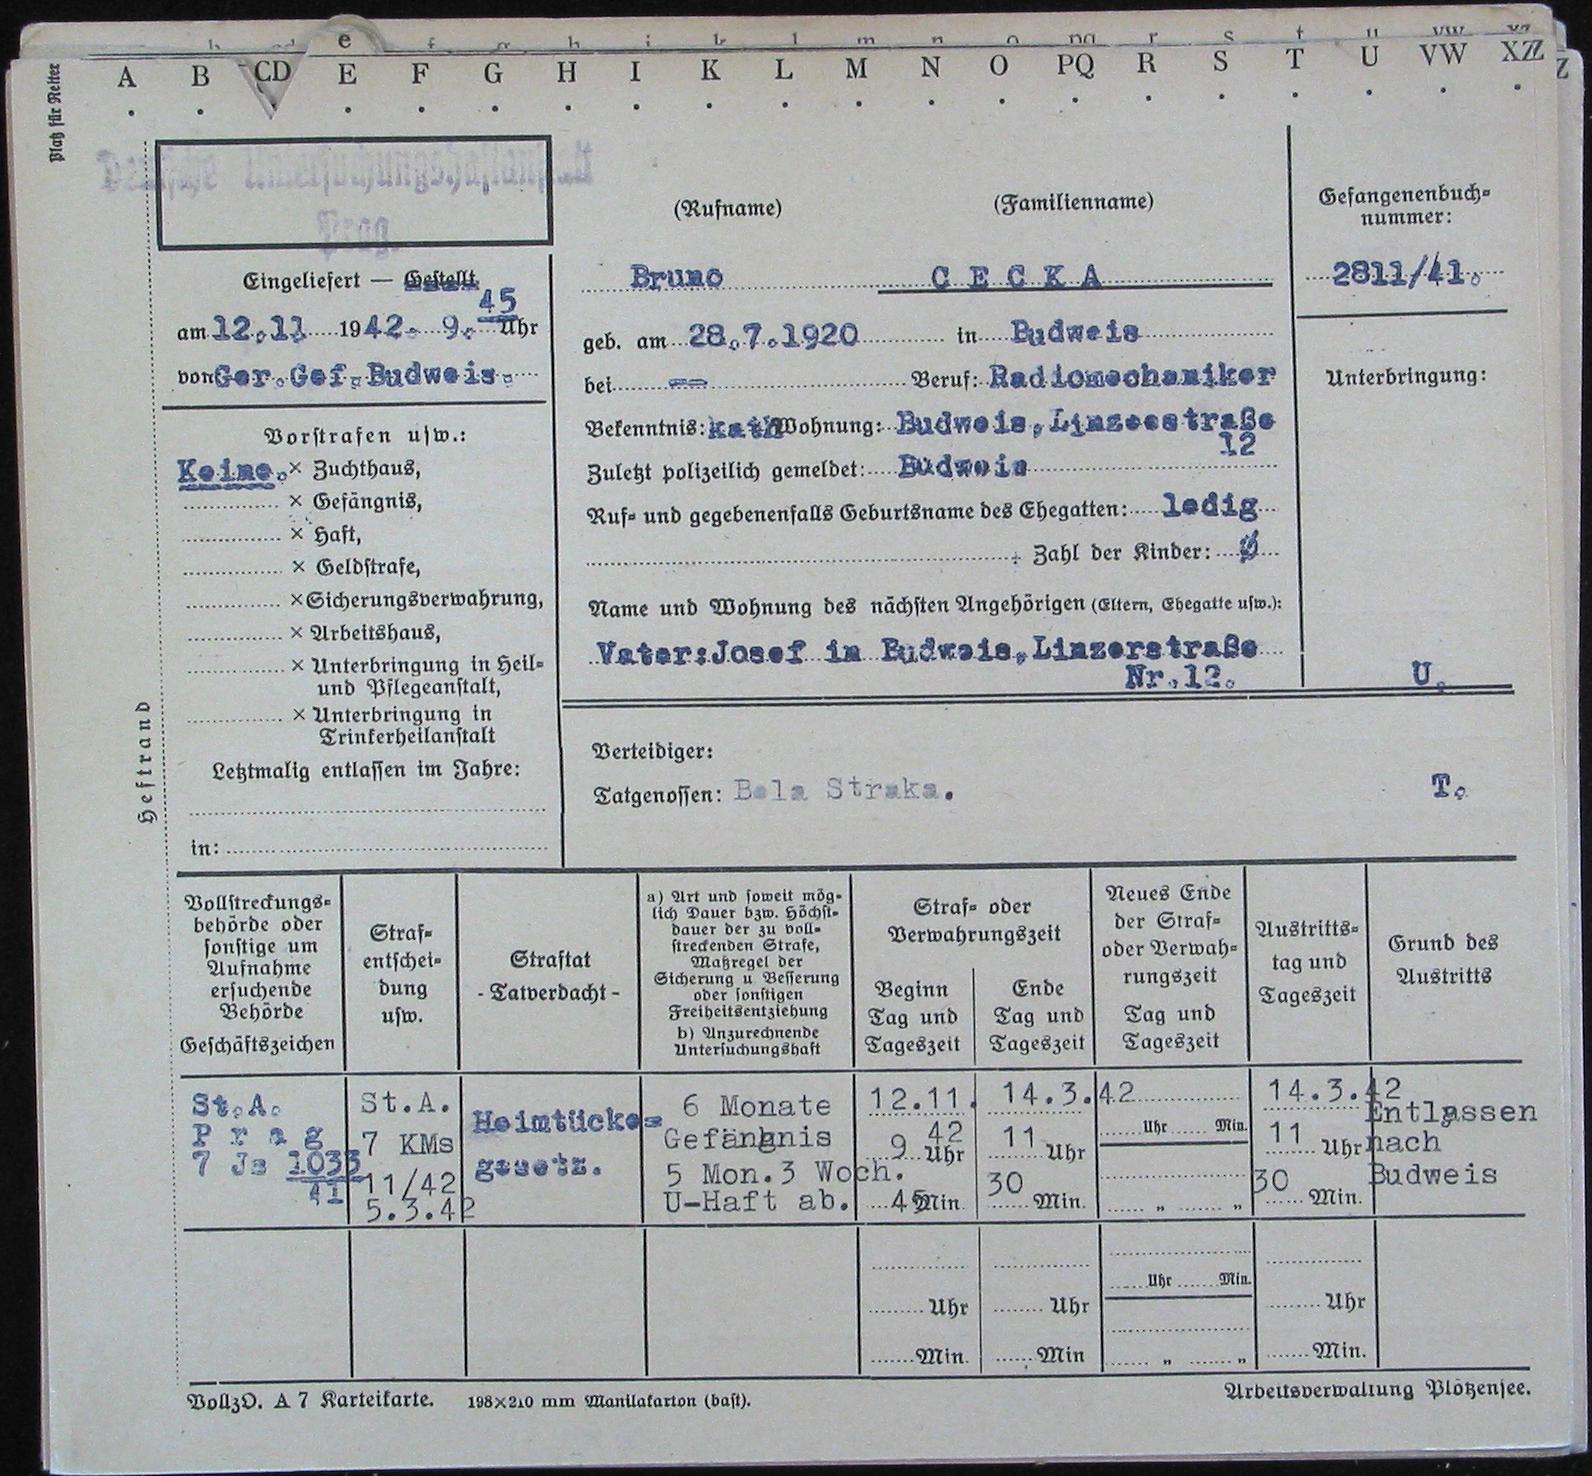 e
A B CD E F G H I K L M N O PQ R S T U VW XZ
Platz für Reiter
Heftrand
Deutsche Untersuchungshaftanstalt
Prag.
Eingeliefert — Gestellt
am 12.11 1942. 9. 45 Uhr
von Ger.Gef. Budweis.
Vorstrafen usw.:
Keine. × Zuchthaus,
× Gefängnis,
× Haft,
× Geldstrafe,
× Sicherungsverwahrung,
× Arbeitshaus,
× Unterbringung in Heil-
und Pflegeanstalt,
× Unterbringung in
Trinkerheilanstalt
Letztmalig entlassen im Jahre:
in:
(Rufname) (Familienname)
Bruno C E C K A
geb. am 28.7.1920 in Budweis
bei — Beruf: Radiomechaniker
Bekenntnis: kath Wohnung: Budweis, Linzeestraße
12
Zuletzt polizeilich gemeldet: Budweis
Ruf- und gegebenenfalls Geburtsname des Ehegatten: ledig
; Zahl der Kinder: Ø
Name und Wohnung des nächsten Angehörigen (Eltern, Ehegatte usw.):
Vater:Josef in Budweis, Linzerstraße
Nr.12.
Gefangenenbuch-
nummer:
2811/41.
Unterbringung:
U.
Verteidiger:
Tatgenossen: Bela Straka.
T.
Vollstreckungs-
behörde oder
sonstige um
Aufnahme
ersuchende
Behörde
Geschäftszeichen
Straf-
entschei-
dung
usw.
Straftat
- Tatverdacht -
a) Art und soweit mög-
lich Dauer bzw. Höchst-
dauer der zu voll-
streckenden Strafe,
Maßregel der
Sicherung u Besserung
oder sonstigen
Freiheitsentziehung
b) Anzurechnende
Untersuchungshaft
Straf- oder
Verwahrungszeit
Beginn
Tag und
Tageszeit
Ende
Tag und
Tageszeit
Neues Ende
der Straf-
oder Verwah-
rungszeit
Tag und
Tageszeit
Austritts-
tag und
Tageszeit
Grund des
Austritts
St.A.
P r a g
7 Js 1033
41
St.A.
7 KMs
11/42
5.3.42
Heimtücke-
gesetz.
6 Monate
Gefängnis
5 Mon.3 Woch.
U-Haft ab.
12.11.
42
9 Uhr
45 Min.
14.3.42
11 Uhr
30 Min.
Uhr Min.
" "
14.3.42
11 Uhr
30 Min.
Entlassen
nach
Budweis
Uhr Uhr Uhr Min. Uhr
Min. Min " " Min.
VollzO. A 7 Karteikarte. 198×210 mm Manilakarton (bast).
Arbeitsverwaltung Plötzensee.